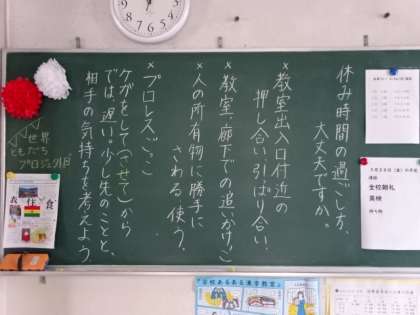 休み時間の過ごし方、
大丈夫ですか。
×教室出入口付近の
押し合い、引っぱり合い、
×教室、廊下での追いかけっこ
×人の所有物に勝手に
さわる、使う。
×プロレスごっこ
ケガをして(させて)から
では、遅い。少し先のことと、
相手の気持ちを考えよう。
世界
ともだち
プロジェクト
衣住食
全校朝礼
英検